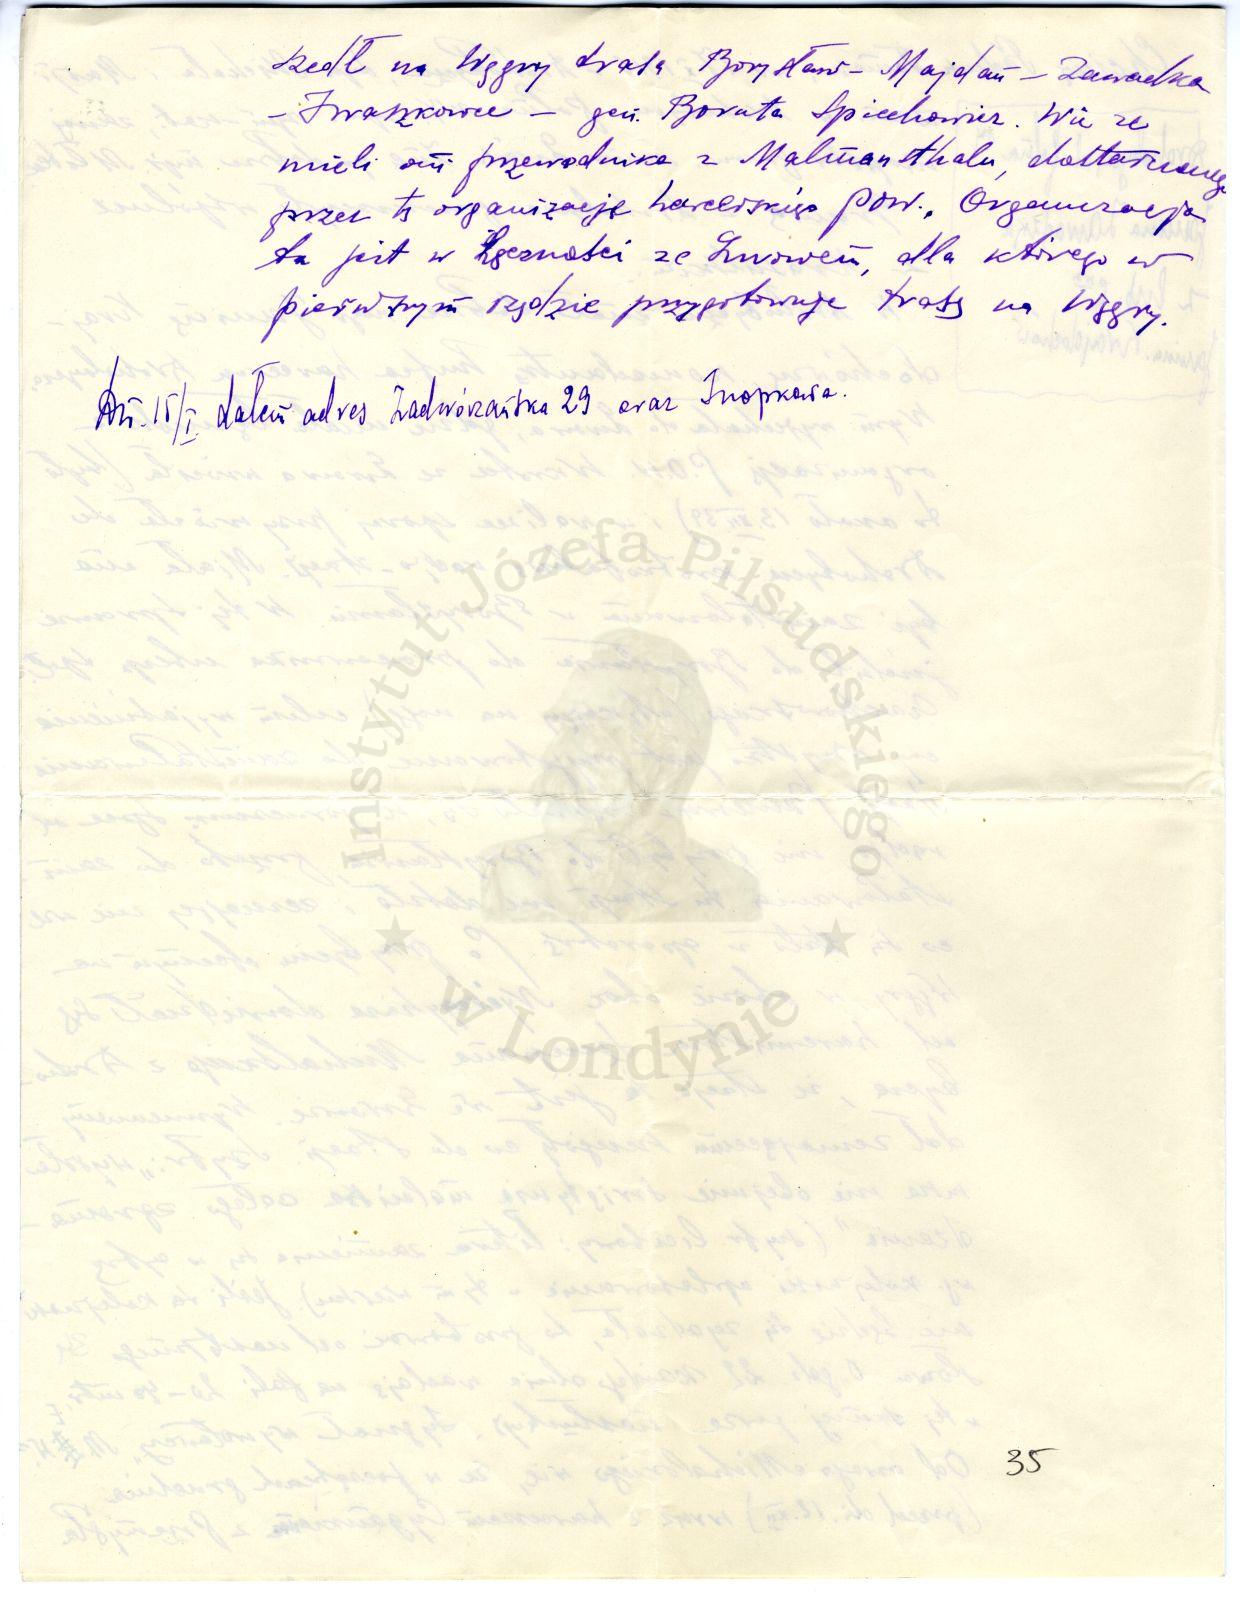 szedł na Węgry trasą Borysław - Majdan - Zawadka
- Iwaszkowce - gen. Boruta Spiechowicz. Wie że
mieli oni przewodnika z Malmansthalu, dostarczonego
przez tę organizację harcerskiego POW. Organizacja
ta jest w łączności ze Lwowem, dla którego w
pierwszym rzędzie przygotowuje trasę na Węgry.
Dn. 15/I. dałem adres Zadwórzańska 29 oraz
Instytut Józefa Piłsudskiego
w Londynie
35